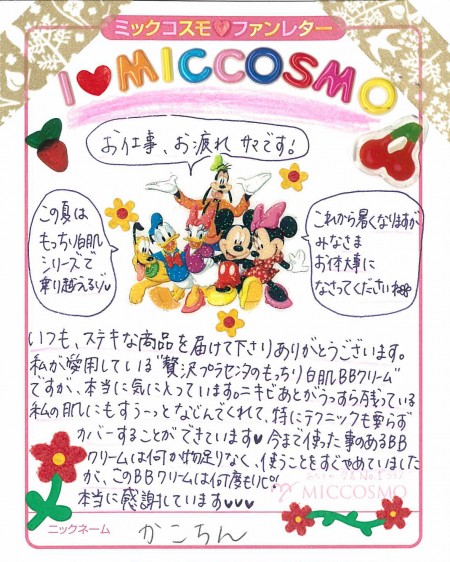 ミックコスモ♥ファンレター
I♥MICCOSMO
お仕事、お疲れサマです!
この夏は
もっちり白肌
シリーズで
乗り越えるゾ♡
これから暑くなりますが
みなさま
お体大事に
なさってくださいね
いつも、ステキな商品を届けて下さりありがとうございます。
私が愛用している“贅沢プラセンタのもっちり白肌BBクリーム”
ですが、本当に気に入っています。ニキビあとがうっすら残っている
私の肌にもすうーっとなじんでくれて、特にテクニックも要らず
カバーすることができています♥今まで使った事のあるBB
クリームは何か物足りなく、使うことをすぐやめていました
が、このBBクリームは何度もリピ!
本当に感謝しています♥♥♥
MICCOSMO
ニックネーム かこちん